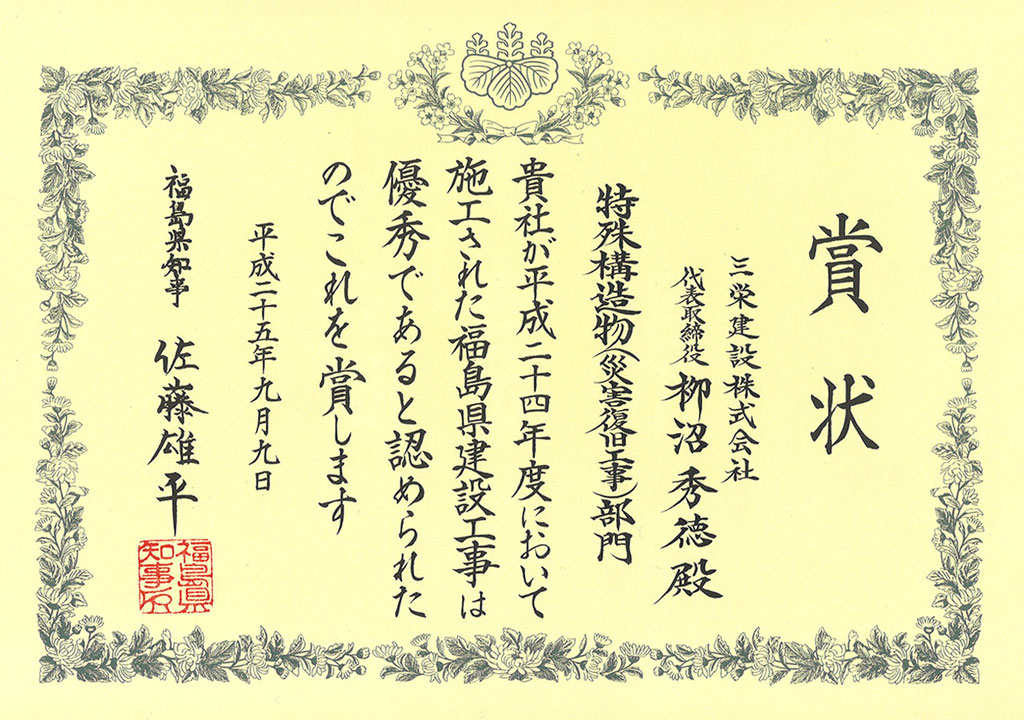 賞状
三栄建設株式会社
代表取締役 柳沼秀徳殿
特殊構造物(災害復旧工事)部門
貴社が平成二十四年度において
施工された福島県建設工事は
優秀であると認められた
のでこれを賞します
平成二十五年九月九日
福島県知事 佐藤雄平
福島県
知事之印